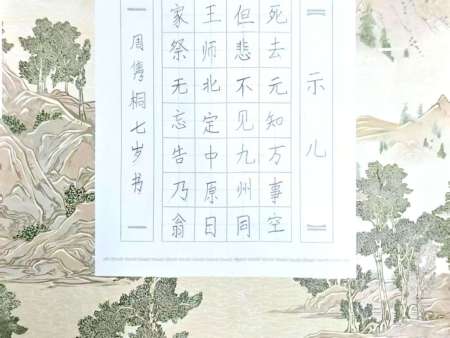 示儿
死去元知万事空
但悲不见九州同
王师北定中原日
家祭无忘告乃翁
周桐七岁书